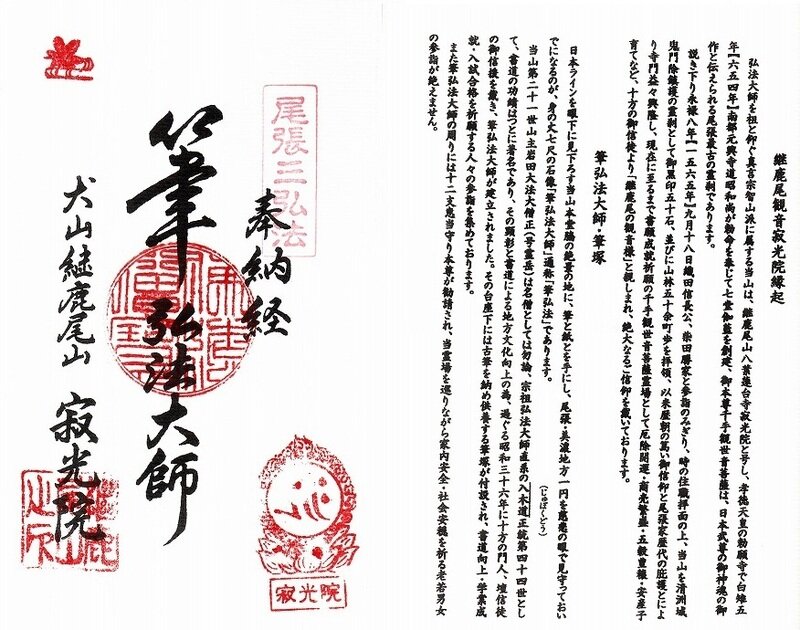 継鹿尾観音寂光院縁起
弘法大師を祖と仰ぐ真言宗智山派に属する当山は、継鹿尾山八葉蓮台寺寂光院と号し、孝徳天皇の勅願寺で白雉五
年【六五四年】南都元興寺道昭和尚が勅命を奉じて七堂伽藍を創建、御本尊千手観世音菩薩は、日本武尊の御神魂の御
作と伝えられる尾張最古の霊刹であります。
説き下り永禄八年【一五六五年】九月十八日織田信長公、柴田勝家と参詣のみぎり、時の住職拝面の上、当山を清洲城
鬼門除鎮護の霊刹として御黒印五十石、並びに山林五十余町歩を拝領、以来歴朝の篤い御信仰と尾張家歴代の庇護とによ
り寺門益々興隆し、現在に至るまで書願成就祈願の千手観世音菩薩霊場として厄除開運・商売繁盛・五穀豊穣・安産子
育てなど、十方の御信徒より「継鹿尾の観音様」と親しまれ、絶大なるご信仰を戴いております。
筆弘法大師・筆塚
日本ラインを眼下に見下ろす当山本堂脇の絶景の地に、筆と紙とを手にし、尾張・美濃地方一円を慈悲の眼で見守っておい
でになるのが、身の丈七尺の石像「筆弘法大師」通称「筆弘法」であります。
(じゅぼくどう)
当山第二十一世山主岩田大法大僧正(号霊岳)は名僧としては勿論、宗祖弘法大師直系の入木道正統第四十四世とし
て、書道の功績はつとに著名であり、その顕彰と書道による地方文化向上の為、過ぐる昭和三十六年に十方の門人、壇信徒
の御信援を戴き、筆弘法大師が建立されました。その台座下には古筆を納め供養する筆塚が付設され、書道向上・学業成
就・入試合格を祈願する人々の参詣を集めております。
また筆弘法大師の周りには十二支恵当守り本尊が勧請され、当霊場を巡りながら家内安全・社会安穏を祈る老若男女
の参詣が絶えません。
尾張三弘法
奉納経
筆弘法大師
犬山継鹿尾山 寂光院
寂光院